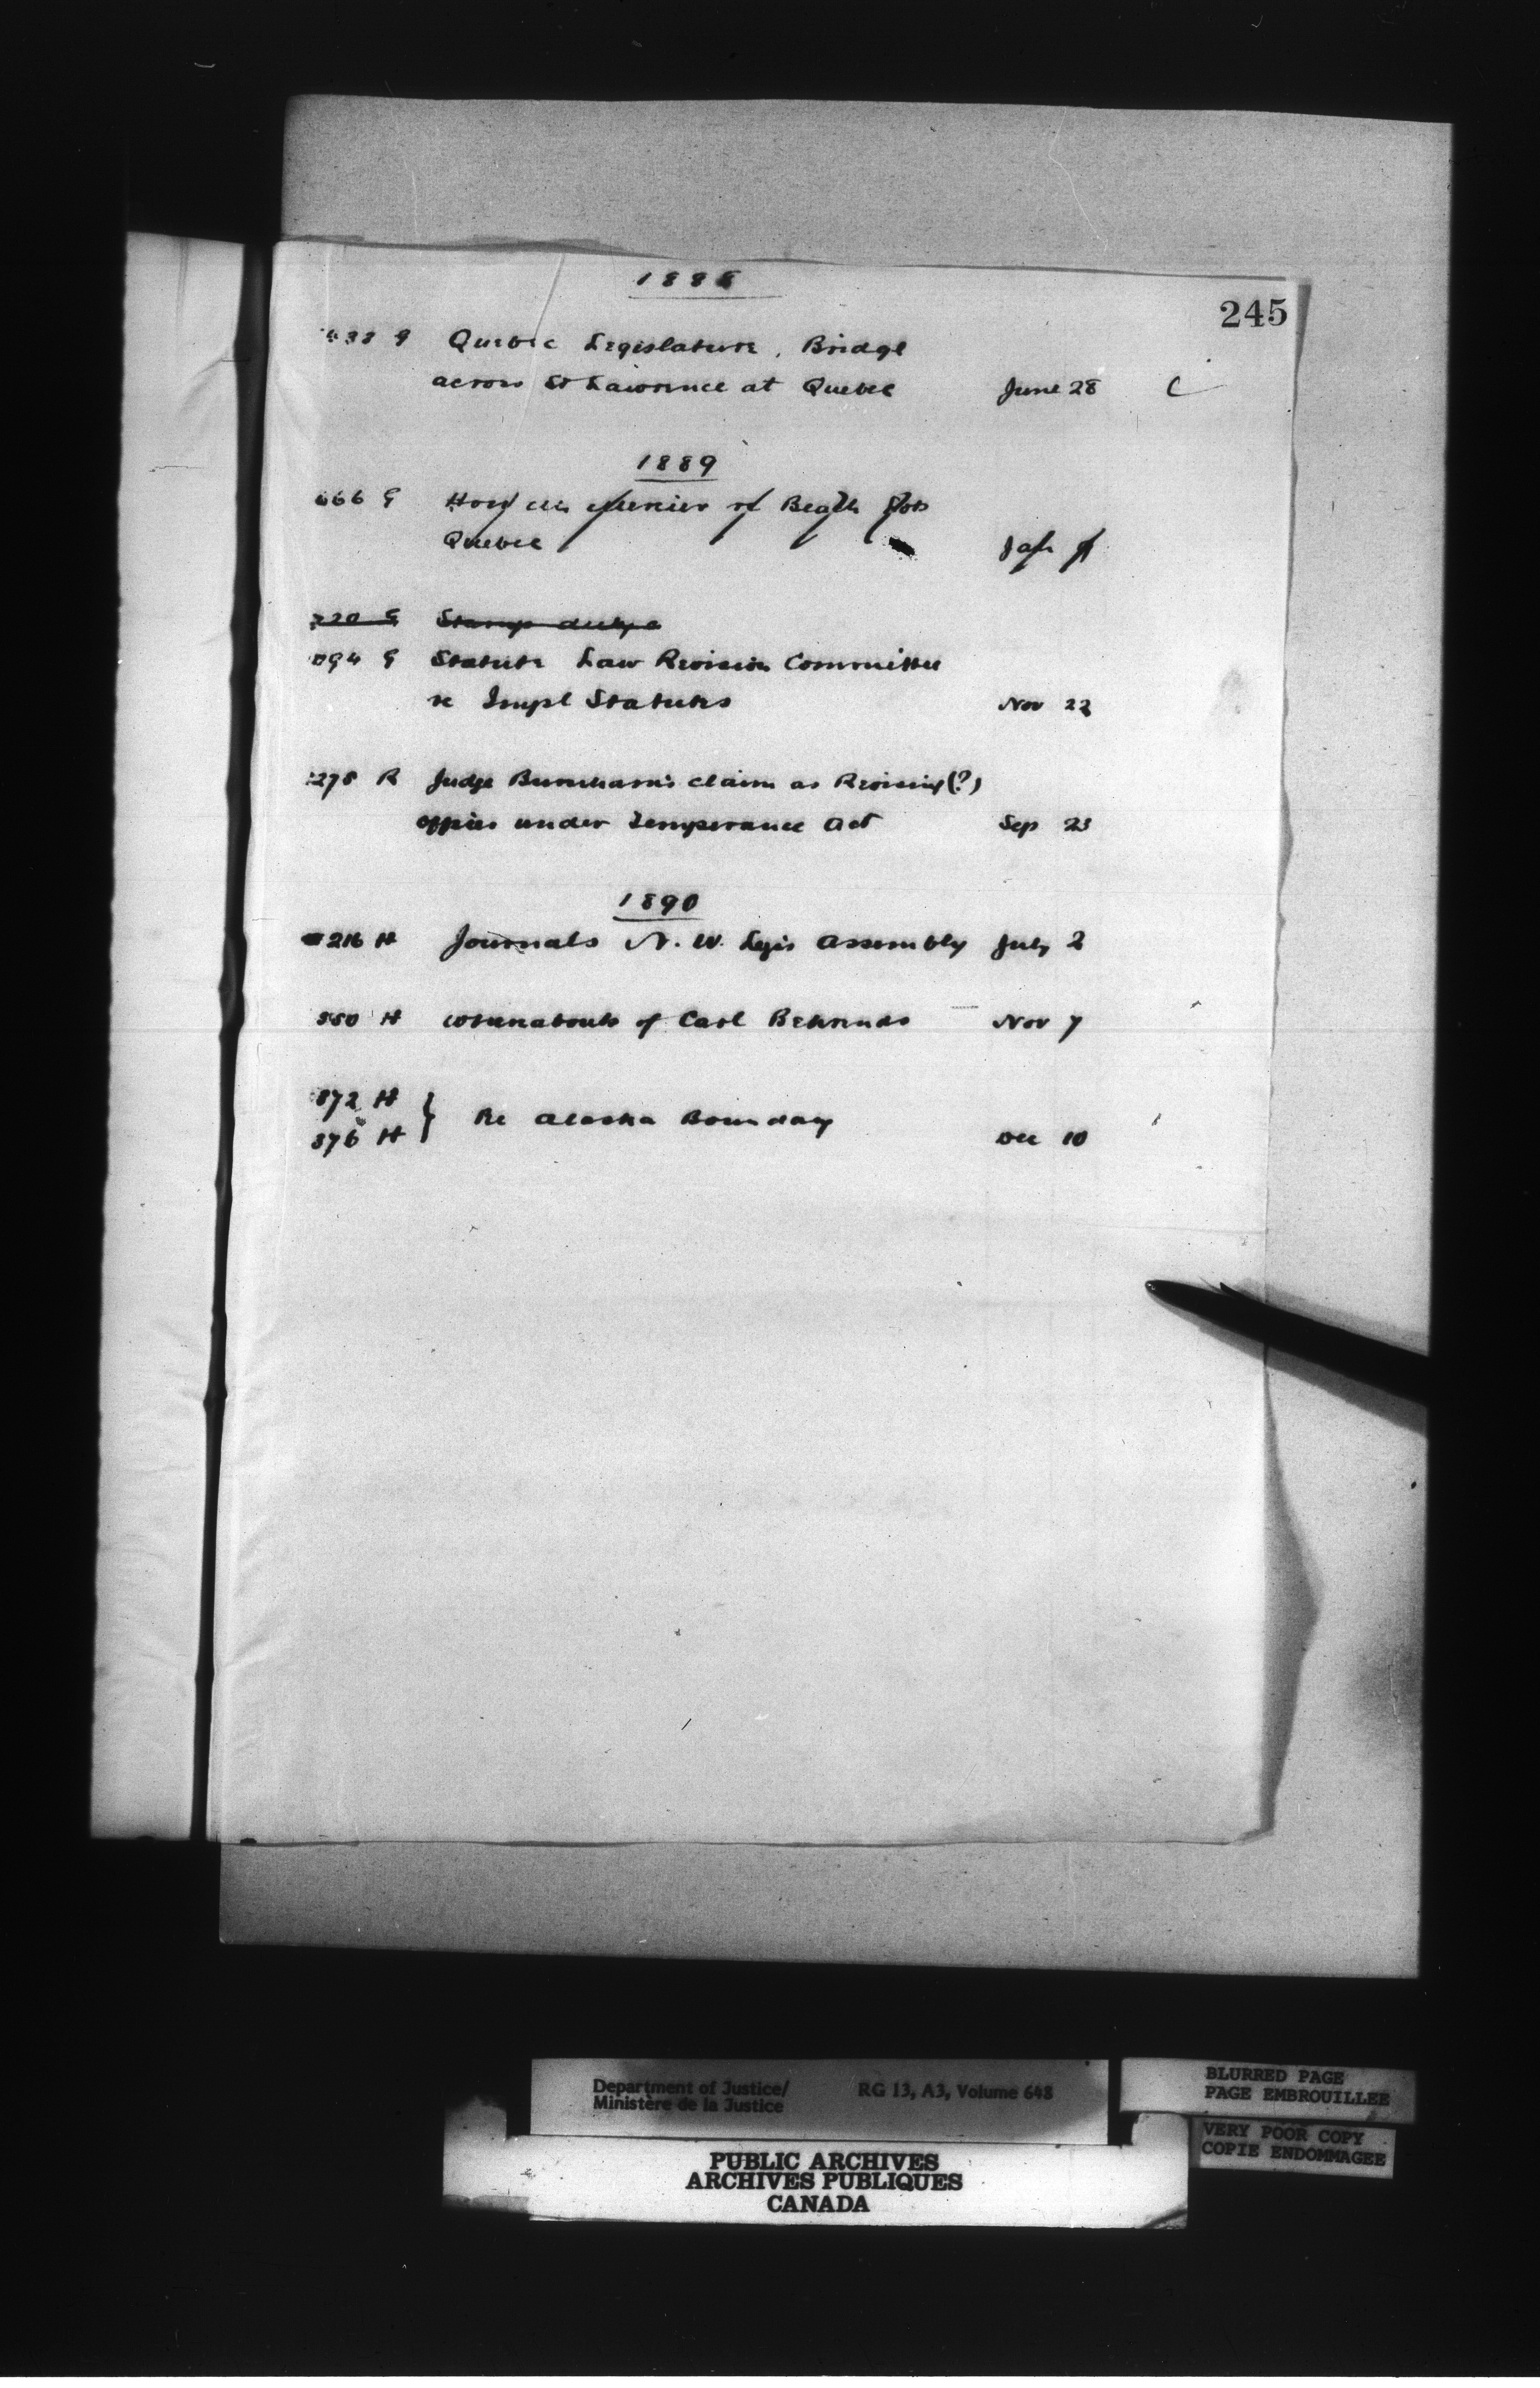 1888
245
438 G Quebec Legislature, Bridge
across St Lawrence at Quebec June 28 C
1889
666 G Quebec Jan
220 G Stamp duty
094 G Statute Law Revision Committee
re Impl Statutes Nov 22
278 R Judge Burnham's claim as Revising (?)
officer under Temperance Act Sep 23
1890
216 H Journals N. W. Legis Assembly July 2
550 H whereabouts of Carl Behrends Nov 7
872 H
876 H } Re Alaska Boundary Dec 10
Department of Justice/
Ministère de la Justice
RG 13, A3, Volume 648
BLURRED PAGE
PAGE EMBROUILLEE
VERY POOR COPY
COPIE ENDOMMAGEE
PUBLIC ARCHIVES
ARCHIVES PUBLIQUES
CANADA